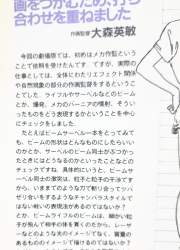 画をつかむため、打ち
合わせを重ねました
作画監督 大森英敏
今回の劇場版では、初めはメカ作監という
ことで依頼を受けたんですが、実際の
仕事としては、全体にわたりエフェクト関係
や自然現象の部分の作画監督をするというこ
とでした。ライフルやサーベルなどのビーム
とか、爆発、メカのバーニアの噴射、そうい
ったものをどう表現するかということを中心
にチェックをしました。
たとえばビームサーベル一本をとってみて
も、ビームの形状はどんなものにしたらいい
のかとか、サーベルのビーム同士がぶつかっ
たときにはどうなるのかといったことなどの
チェックですね。具体的にいうと、ビームサ
ーベル同士の衝突は、粒子と粒子の干渉です
から、いままでのような刀で斬り合ってツバ
ぜり合いをするようなチャンバラスタイルで
はない戦いの表現法があるのではないか?
とか、ビームライフルのビームは、細かい粒
子が飛んで相手の体を貫くのだから、レーザ
ーなどのような光の束のイメージでなく、質量の
あるもののイメージで描けるのではないか?